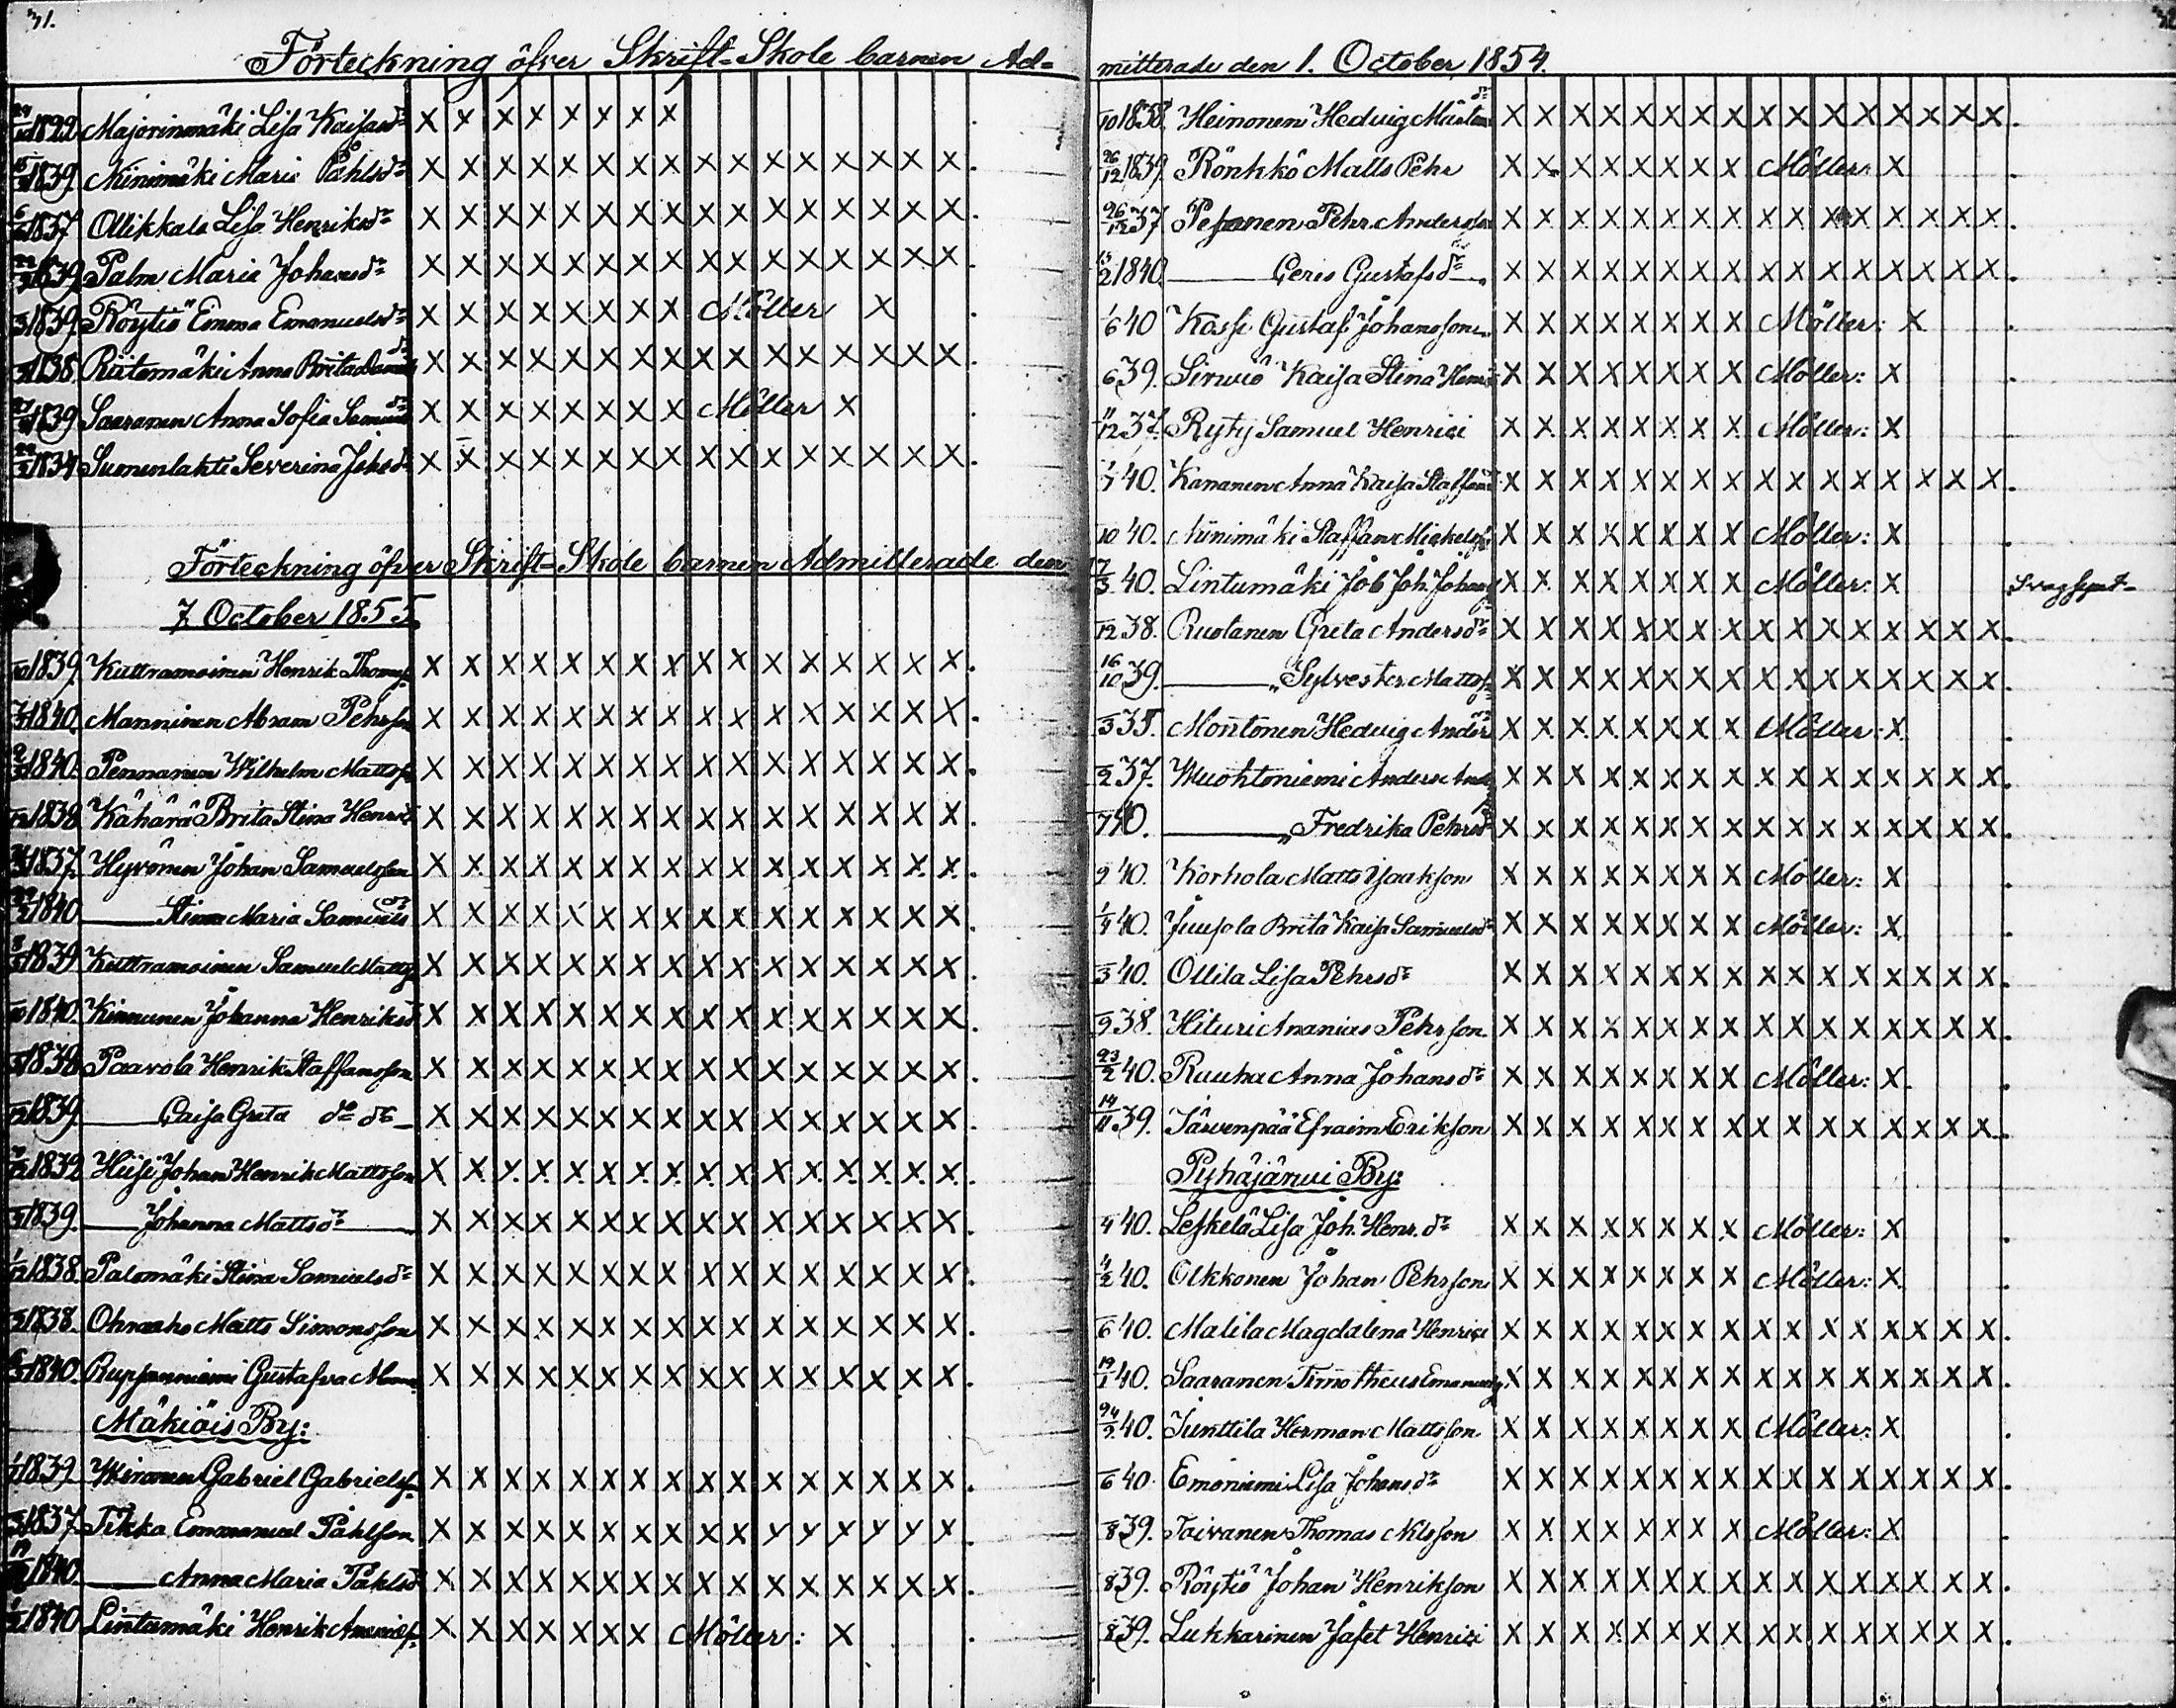 71.
Förteckning öfver Skrift-Skole barnen Ad-
1822 Majorinmäki Lisa Kaisasdr X X X X X X X X
1839 Niinimäki Maria Påhlsdr X X X X X X X X X X X X X X X X
1837 Ollikkala Lisa Henriksdr X X X X X X X X X X X X X X X X
1839 Palm Maria Johansdr X X X X X X X X X X X X X X X X
1839 Röytiö Emma Emanuelsdr X X X X X X X X Möller X
1838 Riitamäki Anna Brita X X X X X X X X X X X X X X X X
1839 Saaranen Anna Sofia X X X X X X X X Möller X
1834 Sumenlakti Severina Johsdr X X X X X X X X X X X X X X X X
Förteckning öfver Skrift-Skole barnen Admitterade den
7 October 1855.
1839 Kuttramoinen Henrik X X X X X X X X X X X X X X X X
1840. Manninen Abram Pehrson X X X X X X X X X X X X X X X X
1840. Pennanen Wilhelm Mattss X X X X X X X X X X X X X X X X
1838 Kähärä Brita Stina X X X X X X X X X X X X X X X X
1837. Hyvönen Johan Samuelsson X X X X X X X X X X X X X X X X
1840 Stina Maria Samuelsdr X X X X X X X X X X X X X X X X
8 1839 Kuttramoinen Samuel X X X X X X X X X X X X X X X X
1840. Kinnunen Johanna Henriksd X X X X X X X X X X X X X X X X
1838 Paavola Henrik Staffansson X X X X X X X X X X X X X X X X
1839 Caisa Greta do dr X X X X X X X X X X X X X X X X
1839 Hiisi Johan Henrik Mattsson X X X X X X X X X X X X X X X X
1839. Johanna Mattsdr X X X X X X X X X X X X X X X X
1838. Palomäki Stina Samuelsdr X X X X X X X X X X X X X X X X
1838. Ohraaho Matts Simonsson X X X X X X X X X X X X X X X X
1840. Gustafva X X X X X X X X X X X X X X X X
Mäkiöis By:
1839 Gabriel Gabrielss X X X X X X X X X X X X X X X X
1837. Tikka Emmanuel Påhlson X X X X X X X X X X X X X X X X
1840 Anna Maria Påhlsd X X X X X X X X X X X X X X X X
1840 Lintumäki Henrik X X X X X X X Möller: X
mitterade den 1. October 1854.
10 1838. Heinonen Hedvig X X X X X X X X X X X X X X X X
26/12 1839 Rönkkö Matts Pehr X X X X X X X X Möller: X
26/12 37 Pesonen Pehr Andersson X X X X X X X X X X X X X X X X
13/2 1840 Ceris Gustafsdr X X X X X X X X X X X X X X X X
1/6 40 Kossi Gustaf Johansson X X X X X X X X Möller: X
6 39. Sirwiö Kaisa Stina X X X X X X X X Möller: X
11/12 37. Ryty Samuel Henrici X X X X X X X X Möller: X
40. Kananen Anna Kaisa X X X X X X X X X X X X X X X X
10 40. Niinimäki Staffan Mickelss X X X X X X X X Möller: X
17/3 40. Lintumäki Job Joh. X X X X X X X X Möller: X
12 38. Ruotanen Greta Andersdr X X X X X X X X X X X X X X X X
16/10 39. Sylvester Mattss X X X X X X X X X X X X X X X X
3 35. Montonen Hedvig X X X X X X X X Möller: X
2 37. Wuohtoniemi Anders X X X X X X X X X X X X X X X X
7 40. Fredrika Pehrsdr X X X X X X X X X X X X X X X X
9 40. Korhola Matts Isaakson X X X X X X X X Möller: X
40. Juusola Brita Kaisa Samuelsdr X X X X X X X X Möller: X
3 40. Ollila Lisa Pehrsdr X X X X X X X X X X X X X X X X
9 38. Hituri Ananias Pehrson X X X X X X X X X X X X X X X X
23/2 40. Ruuha Anna Johansdr X X X X X X X X Möller: X
14/11 39. Järvenpää Efraim Erikson X X X X X X X X X X X X X X X X
Pyhäjärwi By:
4 40. Leskelä Lisa Joh. Henr. dr X X X X X X X X Möller: X
2 40. Olkkonen Johan Pehrsson X X X X X X X X Möller: X
6 40. Malila Magdalena Henrici X X X X X X X X X X X X X X X X
19/1 40. Saaranen Timotheus X X X X X X X X X X X X X X X X
24/2. 40. Junttila Herman Mattsson X X X X X X X X Möller: X
6 40. Emoniemi Lisa Johansdr X X X X X X X X X X X X X X X X
8 39. Toivanen Thomas Nilsson X X X X X X X X Möller: X
8 39. Röytiö Johan Henrikson X X X X X X X X X X X X X X X X
8 39. Lukkarinen Jafet Henrici X X X X X X X X X X X X X X X X